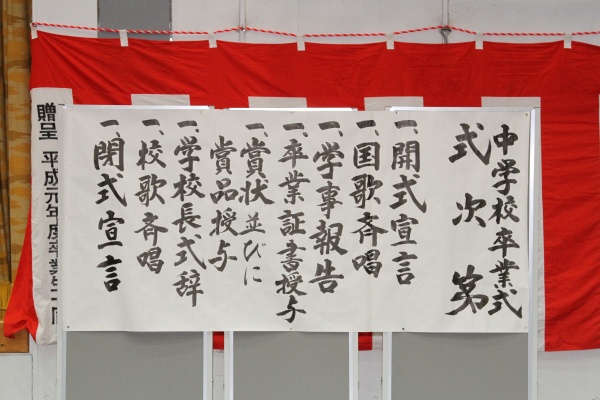 中学校卒業式
式次第
一、開式宣言
一、国歌斉唱
一、学事報告
一、卒業証書授与
一、賞状並びに
賞品授与
一、学校長式辞
一、校歌斉唱
一、閉式宣言
贈呈 平成元年度卒業生一同